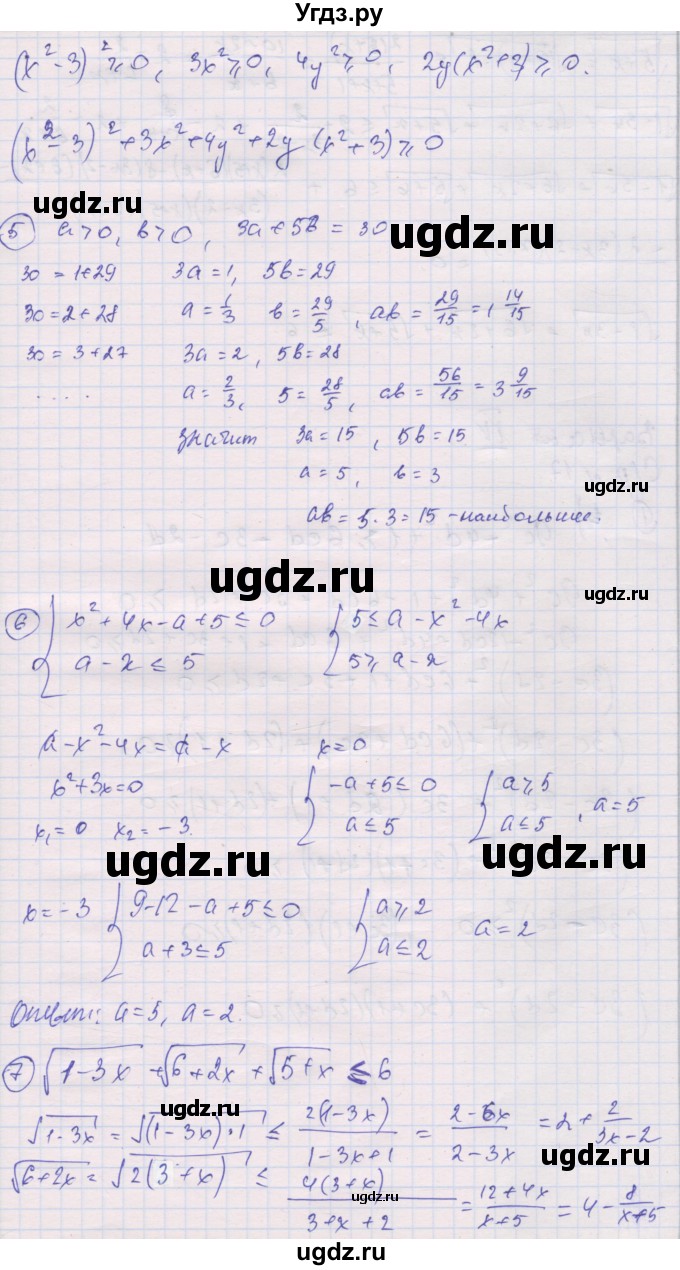 Угдз.ру
(x² - 3)² ≥ 0, 3x² ≥ 0, 4y² ≥ 0, 2y(x² + 3) ≥ 0.
(x² - 3)² + 3x² + 4y² + 2y(x² + 3) ≥ 0
ugdz.ru ugdz.ru
⑤ a > 0, b > 0, 3a + 5b = 30
30 = 1 + 29 3a = 1, 5b = 29
30 = 2 + 28 a = 1/3 b = 29/5, ab = 29/15 = 1 14/15
30 = 3 + 27 3a = 2, 5b = 28
.... a = 2/3, 5 = 28/5, ab = 56/15 = 3 9/15
значит 3a = 15, 5b = 15
a = 5, b = 3
ugdz.ru
ab = 5 · 3 = 15 - наибольшее.
ugdz.ru ugdz.ru
⑥ { x² + 4x - a + 5 ≤ 0 { 5 ≤ a - x² - 4x
a - x ≤ 5 5 ≥ a - x
ugdz.ru
a - x² - 4x = a - x x = 0
x² + 3x = 0 { -a + 5 ≤ 0 { a ≥ 5
x₁ = 0 x₂ = -3. a ≤ 5 a ≤ 5, a = 5
ugdz.ru ugdz.ru
x = -3 { 9 - 12 - a + 5 ≤ 0 { a ≥ 2
a + 3 ≤ 5 a ≤ 2 a = 2
ugdz.ru
Ответ: a = 5, a = 2.
⑦ √(1 - 3x) + √(6 + 2x) + √(5 + x) ≤ 6
ugdz.ru ugdz.ru
√(1 - 3x) = √((1 - 3x) · 1) ≤ 2(1 - 3x)/(1 - 3x + 1) = (2 - 6x)/(2 - 3x) = 2 + 2/(3x - 2)
ugdz.ru
√(6 + 2x) = √(2(3 + x)) ≤ 4(3 + x)/(3 + x + 2) = (12 + 4x)/(x + 5) = 4 - 8/(x + 5)
ugdz.ru
ugdz.ru